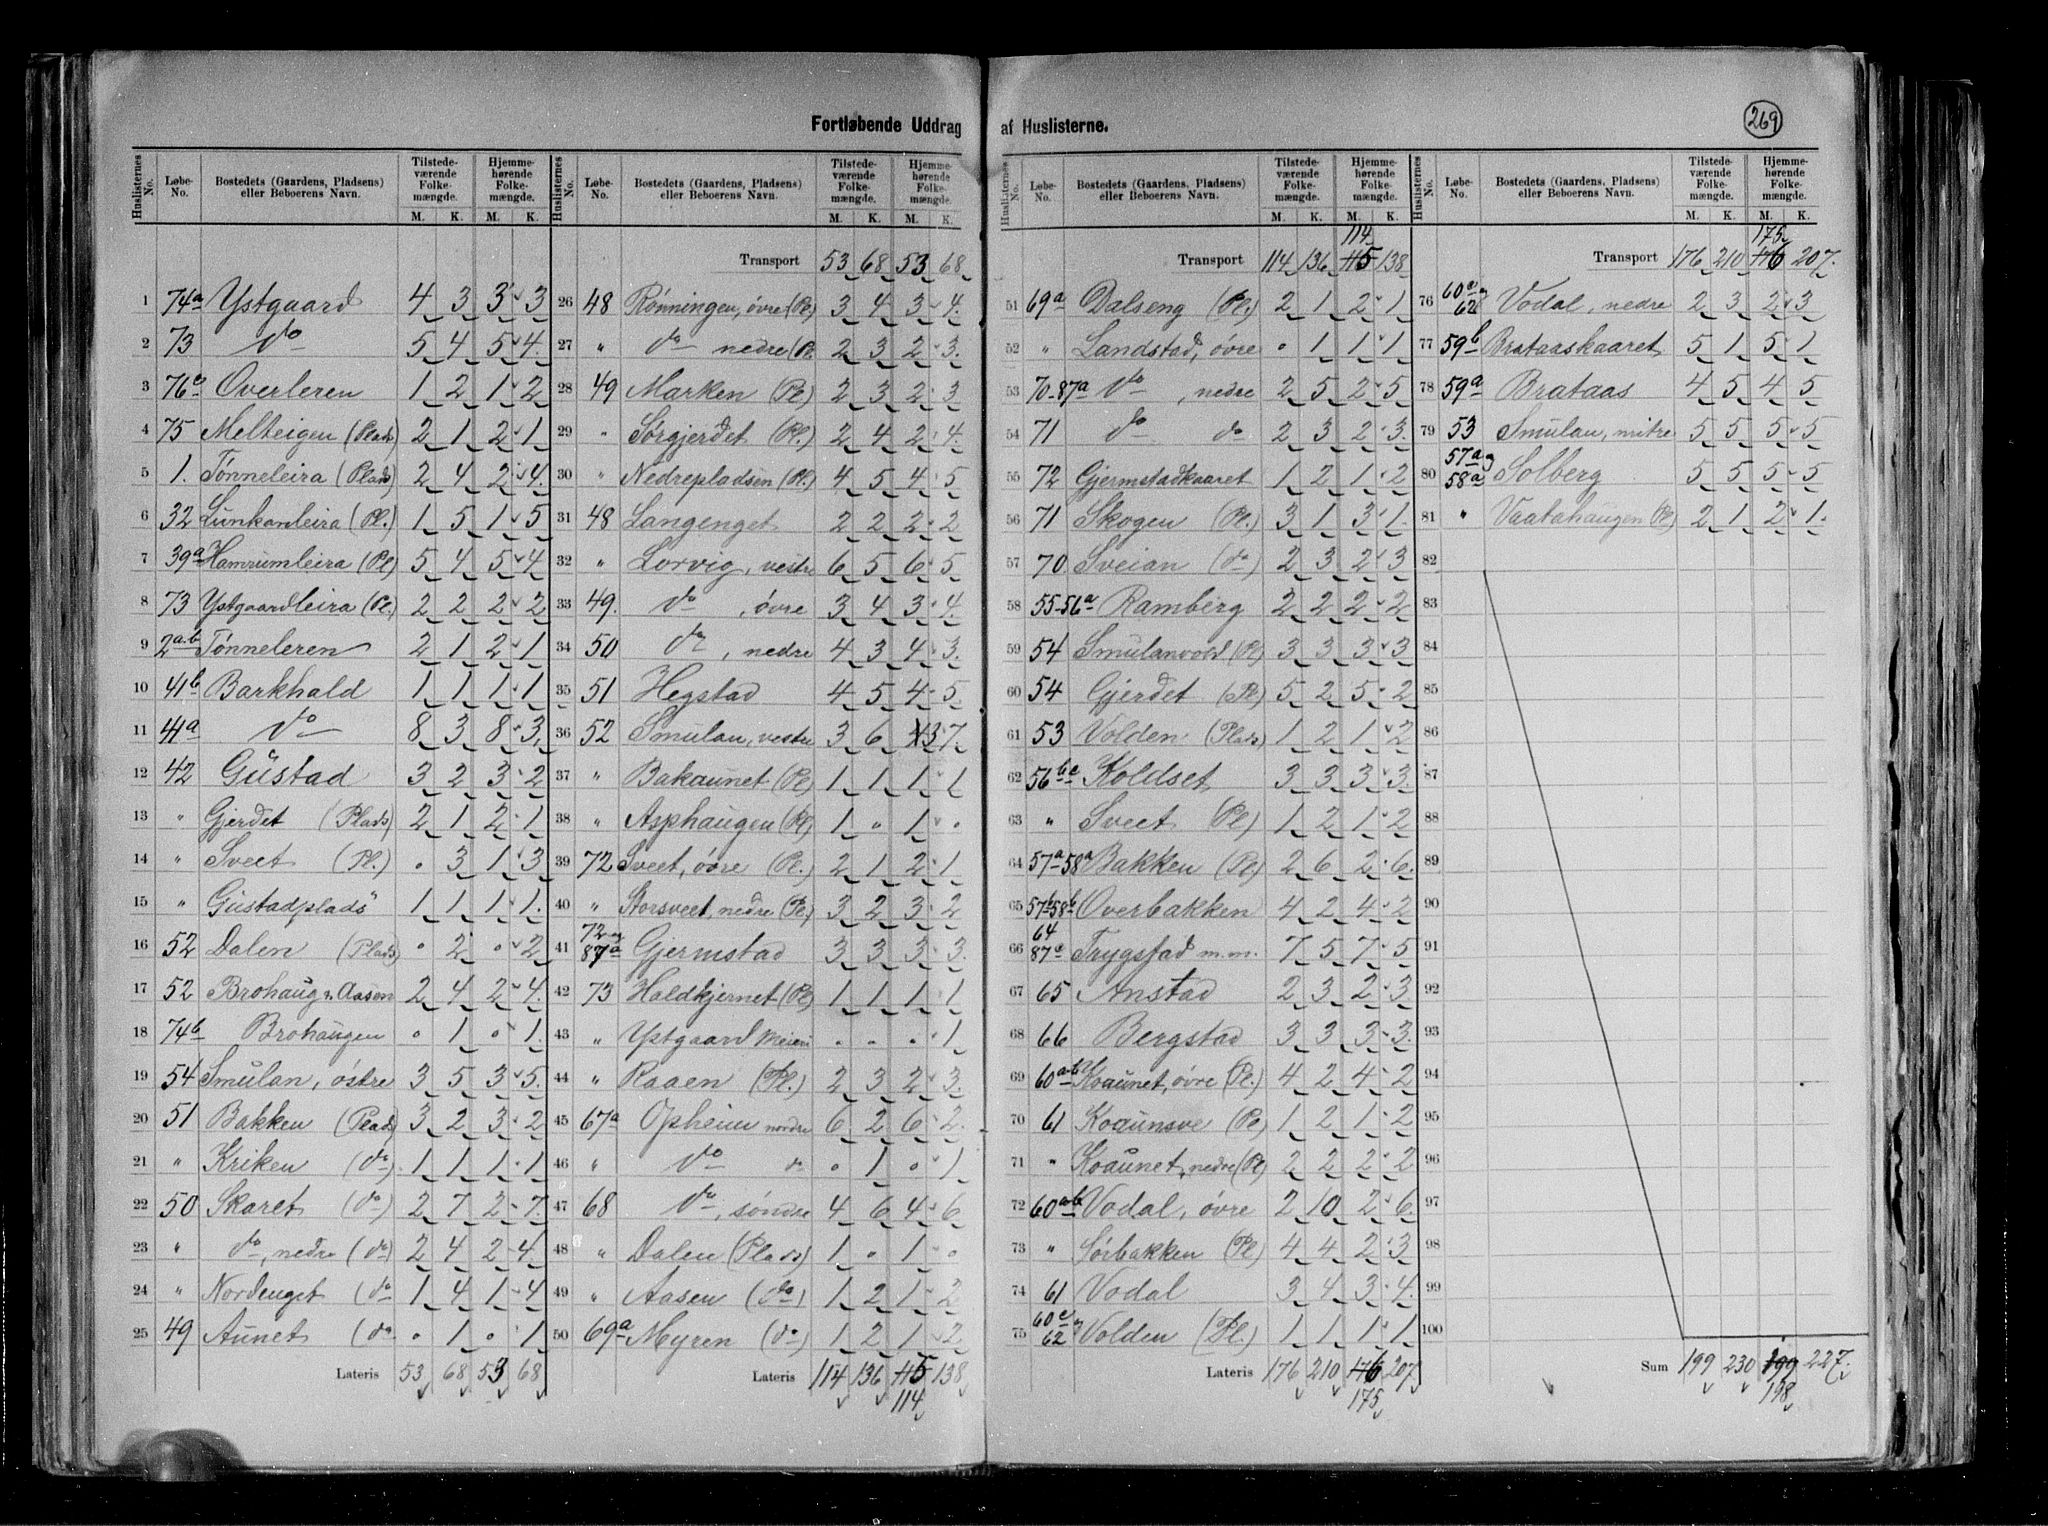 Fortløbende Uddrag af Huslisterne.
269
Huslisternes No. | Løbe-No. | Bostedets (Gaardens, Pladsens) eller Beboerens Navn. | Tilstedeværende Folkemængde. M. K. | Hjemmehørende Folkemængde. M. K.
1 74a Ystgaard 4 3 3 3
2 73 do 5 4 5 4
3 76a Overleren 1 2 1 2
4 75 Melteigen (Plads) 2 1 2 1
5 1. Tønneleira (Plads) 2 4 2 4
6 32 Lunkanleira (Pl.) 1 5 1 5
7 39a Hamrumleira (Pl) 5 4 5 4
8 73 Ystgaardleira (Pl.) 2 2 2 2
9 2a.b Tønneleren 2 1 2 1
10 41b Barkhald 1 1 1 1
11 41a do 8 3 8 3
12 42 Gustad 3 2 3 2
13 " Gjerdet (Plads) 2 1 2 1
14 " Sveet (Pl.) 0 3 1 3
15 " Gustadplads 1 1 1 1
16 52 Dalen (Plads) 0 2 0 2
17 52 Brohaug v. Aasen 2 4 2 4
18 74b Brohaugen 0 1 0 1
19 54 Smulan, østre 3 5 3 5
20 51 Bakken (Plads) 3 2 3 2
21 " Kriken (do) 1 1 1 1
22 50 Skaret (do) 2 7 2 7
23 " do, nedre (do) 2 4 2 4
24 " Nordenget (do 1 4 1 4
25 49 Aunet (do 0 1 0 1
Lateris 53 68 53 68
Transport 53 68 53 68
26 48 Rønningen, øvre (Pl) 3 4 3 4
27 " do nedre (Pl. 2 3 2 3
28 49 Marken (Pl) 2 3 2 3
29 " Sørgjerdet (Pl.) 2 4 2 4
30 " Nedrepladsen (Pl.) 4 5 4 5
31 48 Langenget 2 2 2 2
32 " Lorvig, vestre 6 5 6 5
33 49. do, øvre 3 4 3 4
34 50 do, nedre 4 3 4 3
35 51 Hegstad 4 5 4 5
36 52 Smulan, vestre 3 6 3 7
37 " Bakaunet (Pl) 1 1 1 1
38 " Asphaugen (Pl) 1 0 1 0
39 72 Sveet, øvre (Pl.) 2 1 2 1
40 " Storsveet, nedre (Pl.) 3 2 3 2
41 72 og 87a Gjermstad 3 3 3 3
42 73 Holdkjernet (Pl) 1 1 1 1
43 " Ystgaard Meieri 0 0 0 1
44 " Raaen (Pl.) 2 3 2 3
45 67a Opheim nordre 6 2 6 2
46 " do do 0 1 0 1
47 68 do, søndre 4 6 4 6
48 " Dalen (Plads) 1 0 1 0
49 " Aasen (do) 1 2 1 2
50 69a Myren (do) 1 2 1 2
Lateris 114 136 115 138
114
Transport 114 136 115 138
114
51 69a Dalseng (Pl.) 2 1 2 1
52 " Landstad, øvre 0 1 1 1
53 70-87a do, nedre 2 5 2 5
54 71 do do 2 3 2 3
55 72 Gjermstadkaaret 1 2 1 2
56 71 Skogen (Pl.) 3 1 3 1
57 70 Sveian (do) 2 3 2 3
58 55-56a Ramberg 2 2 2 2
59 54 Smulanvold (Pl) 3 3 3 3
60 54 Gjerdet (Pl) 5 2 5 2
61 53 Volden (Plads) 1 2 1 2
62 56ba Koldset 3 3 3 3
63 " Sveet (Pl) 1 2 1 2
64 57a-58a Bakken (Pl) 2 6 2 6
65 57b58b Overbakken 4 2 4 2
66 64 87a Trygstad m.m. 7 5 7 5
67 65 Anstad 2 3 2 3
68 66 Bergstad 3 3 3 3
69 60a-b Koaunet, øvre (Pl.) 4 2 4 2
70 61 Koaunsve (Pl) 1 2 1 2
71 " Koaunet, nedre (Pl) 2 2 2 2
72 60ab Vodal, øvre 2 10 2 6
73 " Sørbakken (Pl) 4 4 2 3
74 61 Vodal 3 4 3 4
75 60c 62 Volden (Pl.) 1 1 1 1
Lateris 176 210 176 207
175
Transport 176 210 176 207.
175
76 60a og 62 Vodal, nedre 2 3 2 3
77 59b Brataaskaaret 5 1 5 1
78 59a Brataas 4 5 4 5
79 53 Smulan, mitre 5 5 5 5
80 57a og 58a Solberg 5 5 5 5
81 " Vaatahaugen (Pl) 2 1 2 1
82
83
84
85
86
87
88
89
90
91
92
93
94
95
96
97
98
99
100
Sum 199 230 199 227.
198